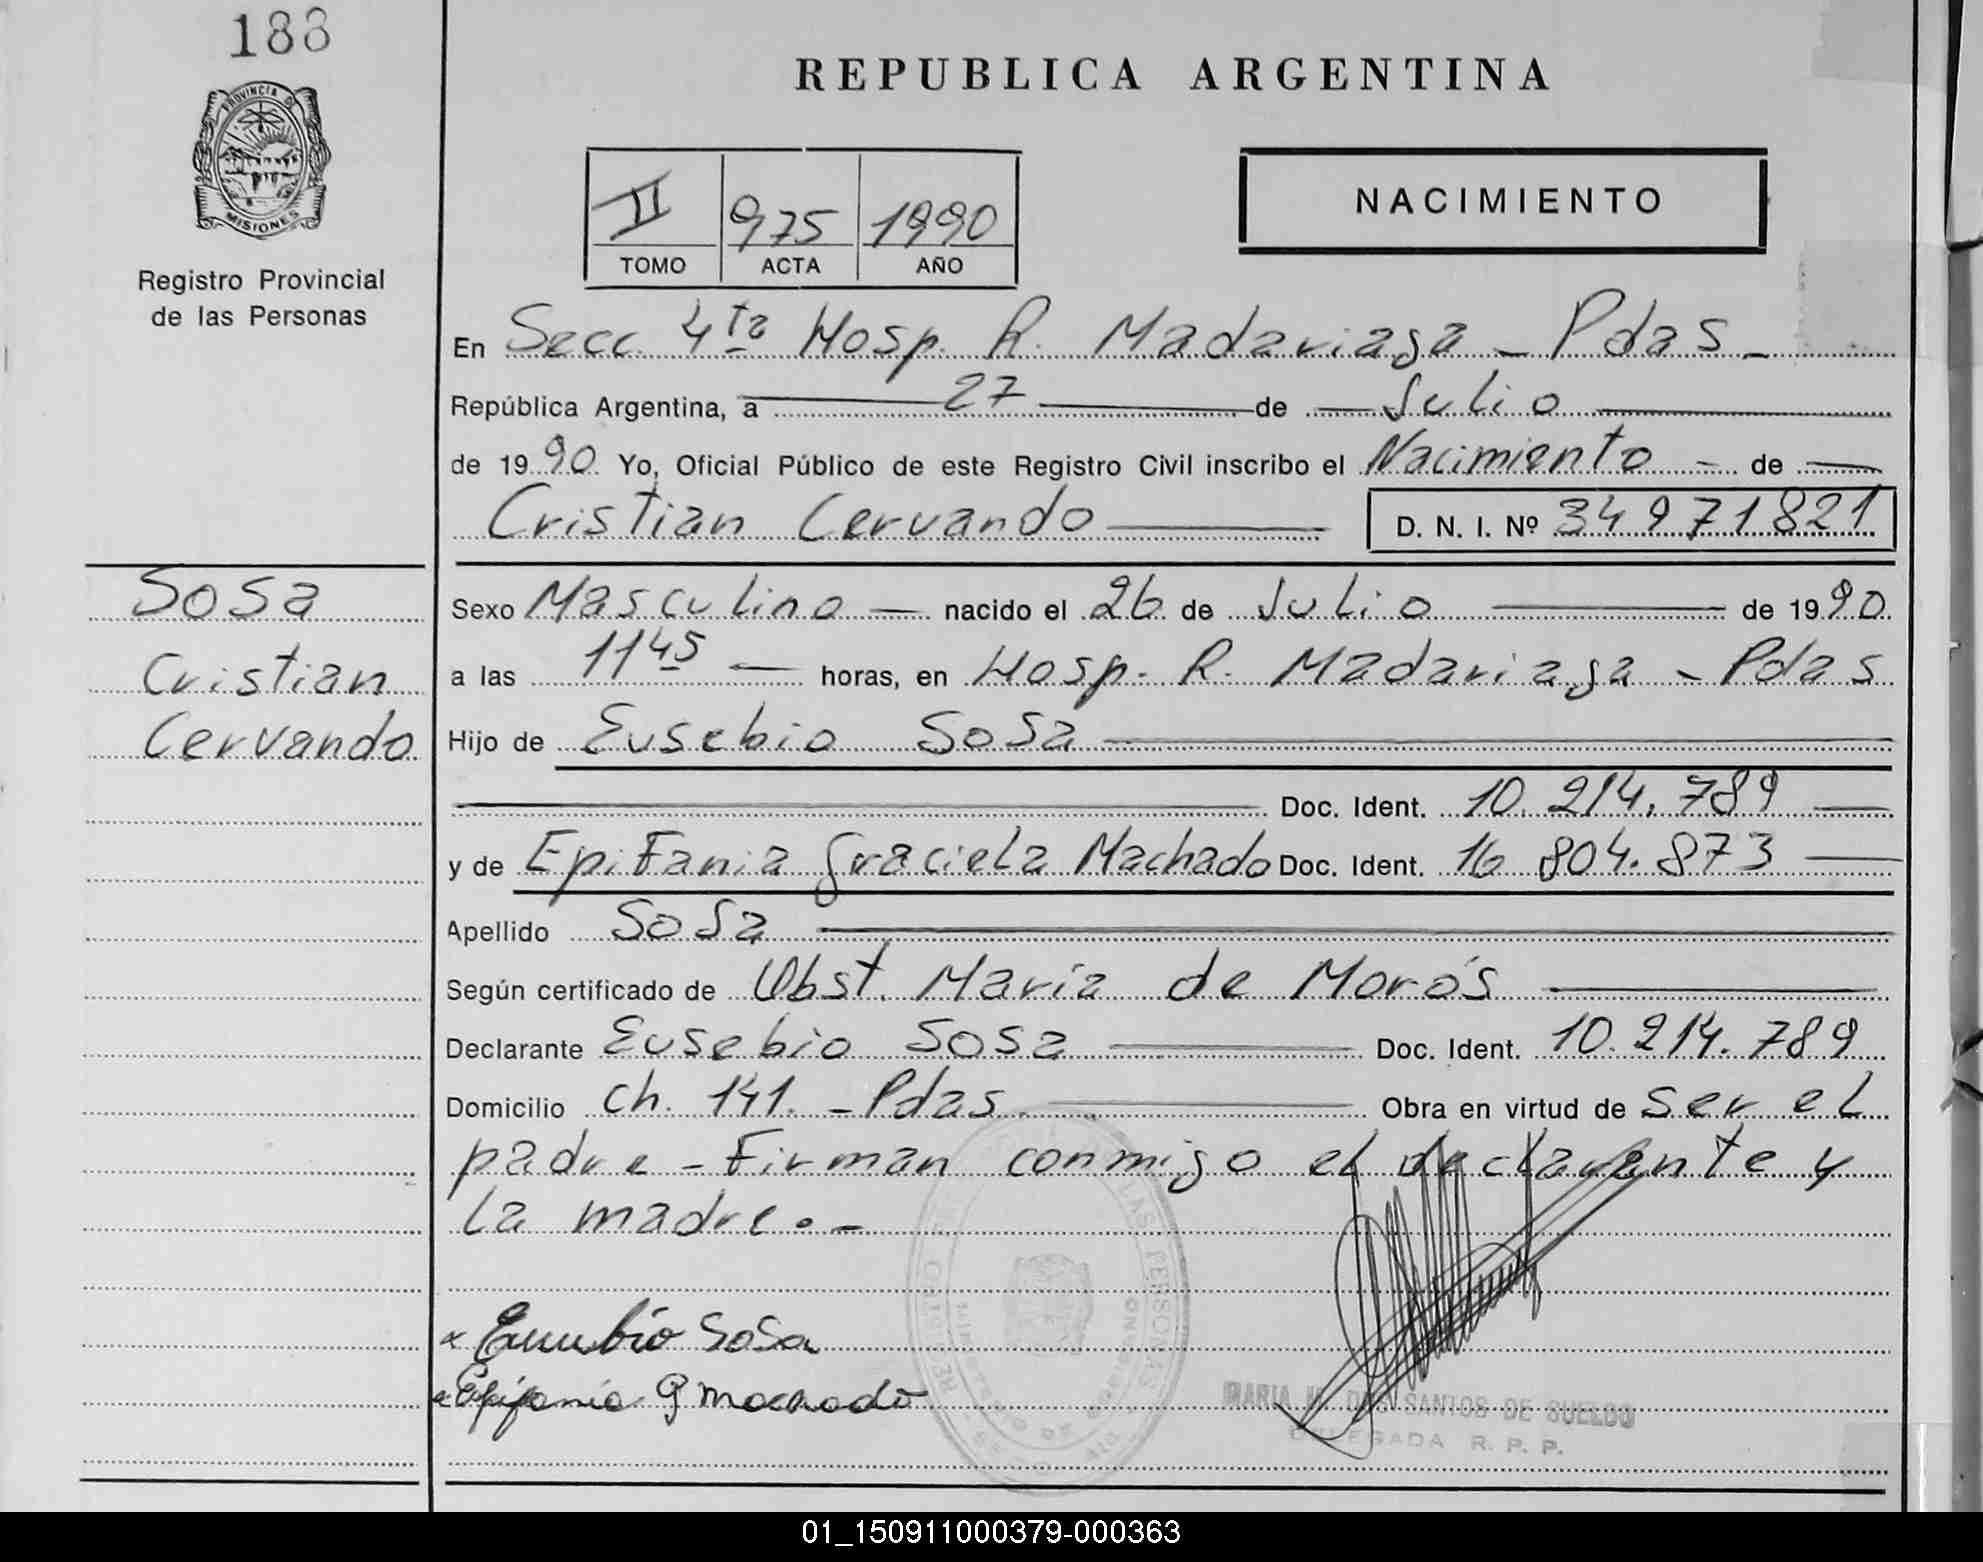 188
REPUBLICA ARGENTINA
PROVINCIA DE
MISIONES
Registro Provincial
de las Personas
II 975 1990
TOMO ACTA AÑO
NACIMIENTO
En Secc. 4ta Hosp. R. Madariaga - Pdas -
República Argentina, a 27 de Julio
de 1990 Yo, Oficial Público de este Registro Civil inscribo el Nacimiento - de
Cristian Cervando D. N. I. Nº 34971821
Sosa
Cristian
Cervando
Sexo Masculino nacido el 26 de Julio de 1990
a las 1145 horas, en Hosp. R. Madariaga - Pdas
Hijo de Eusebio Sosa
Doc. Ident. 10.214.789
y de Epifania Graciela Machado Doc. Ident. 16 804.873
Apellido Sosa
Según certificado de Obst. María de Morós
Declarante Eusebio Sosa Doc. Ident. 10.214.789
Domicilio Ch. 141. - Pdas Obra en virtud de ser el
padre - Firman conmigo el declarante y
la madre. -
Eusebio Sosa
Epifania G Machado
MARIA M. DOS SANTOS DE SUELDO
DELEGADA R. P. P.
01_150911000379-000363